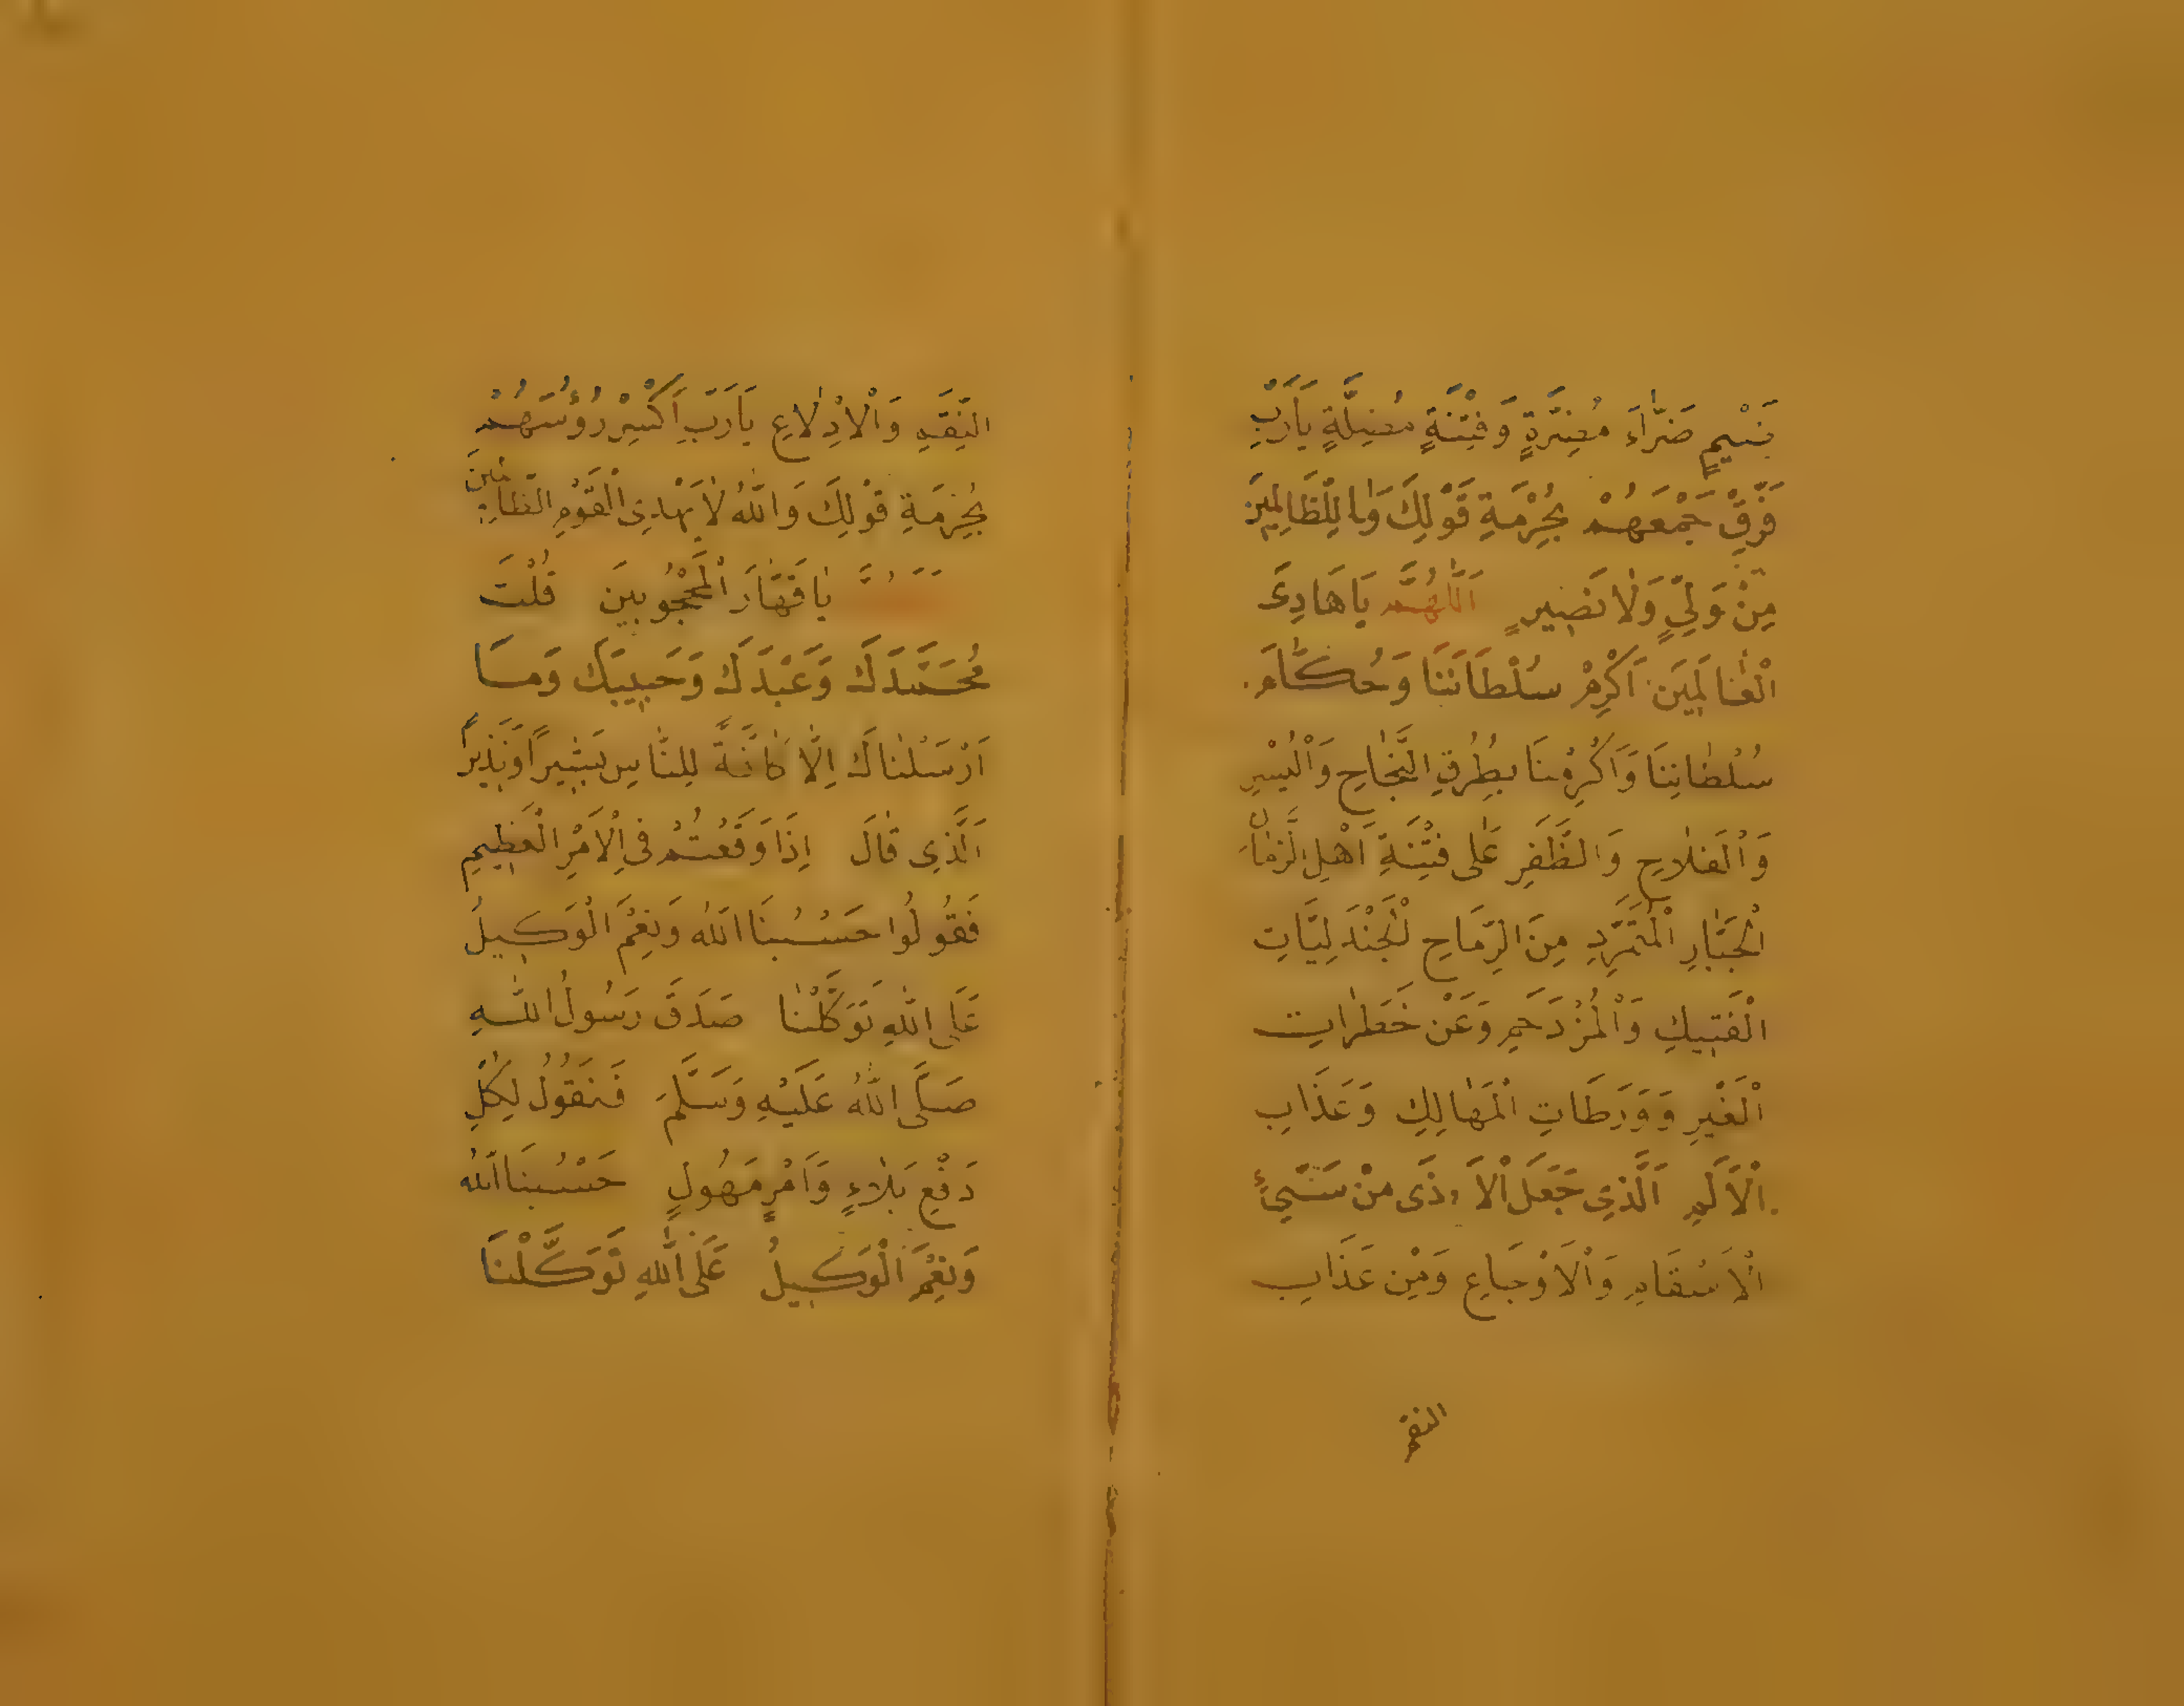 ضَرَّاءَ مُضِرَّةٍ وَفِتْنَةٍ مُضِلَّةٍ يَارَبِّ
فَرِّقْ جَمْعَهُمْ بِحُرْمَةِ قَوْلِكَ وَمَا لِلظَّالِمِينَ
مِنْ وَلِيٍّ وَلَا نَصِيرٍ اَللّٰهُمَّ يَا هَادِىَ
الْعَالَمِينَ اَكْرِمْ سُلْطَانَنَا وَحُكَّامَ
سُلْطَانِنَا وَاَكْرِمْنَا بِطُرُقِ النَّجَاحِ وَالْيُسْرِ
وَالْفَلَاحِ وَالظَّفَرِ عَلٰى فِتْنَةِ اَهْلِ الزَّمَانِ
الْجَبَّارِ الْمُتَمَرِّدِ مِنَ الرِّمَاحِ الْجَنْدَلِيَّاتِ
الْفَتِيكِ وَالْمُزْدَحِمِ وَعَنْ خَطَرَاتِ
الْغَيْرِ وَوَرَطَاتِ الْمَهَالِكِ وَعَذَابِ
الْاَلَمِ اَلَّذِى جَعَلَ الْاَذٰى مِنْ شَيْءٍ
الْاَسْقَامِ وَالْاَوْجَاعِ وَمِنْ عَذَابِ
النقم
النِّقَمِ وَالْاِدْلَاعِ يَارَبِّ اَكْسِرْ رُؤُسَهُمْ
بِحُرْمَةِ قَوْلِكَ وَاللّٰهُ لَا يَهْدِى الْقَوْمَ الظَّالِمِينَ
يَا قَهَّارَ الْمَحْجُوبِينَ قُلْتَ
مُحَمَّدَكَ وَعَبْدَكَ وَحَبِيبَكَ وَمَا
اَرْسَلْنَاكَ اِلَّا كَافَّةً لِلنَّاسِ بَشِيرًا وَنَذِيرًا
اَلَّذِى قَالَ اِذَا وَقَعْتُمْ فِى الْاَمْرِ الْعَظِيمِ
فَقُولُوا حَسْبُنَا اللّٰهُ وَنِعْمَ الْوَكِيلُ
عَلَى اللّٰهِ تَوَكَّلْنَا صَدَقَ رَسُولُ اللّٰهِ
صَلَّى اللّٰهُ عَلَيْهِ وَسَلَّمَ فَنَقُولُ لِكُلِّ
دَفْعِ بَلَاءٍ وَاَمْرٍ مَهُولٍ حَسْبُنَا اللّٰهُ
وَنِعْمَ الْوَكِيلُ عَلَى اللّٰهِ تَوَكَّلْنَا